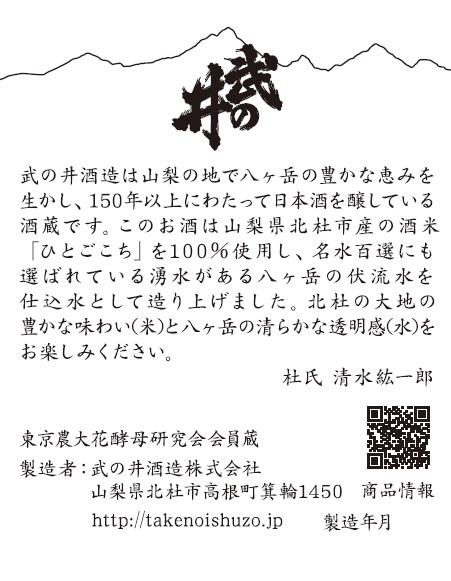 武の井
武の井酒造は山梨の地で八ヶ岳の豊かな恵みを
生かし、150年以上にわたって日本酒を醸している
酒蔵です。このお酒は山梨県北杜市産の酒米
「ひとごこち」を100%使用し、名水百選にも
選ばれている湧水がある八ヶ岳の伏流水を
仕込水として造り上げました。北杜の大地の
豊かな味わい(米)と八ヶ岳の清らかな透明感(水)を
お楽しみください。
杜氏 清水紘一郎
東京農大花酵母研究会会員蔵
製造者：武の井酒造株式会社
山梨県北杜市高根町箕輪1450 商品情報
http://takenoishuzo.jp 製造年月